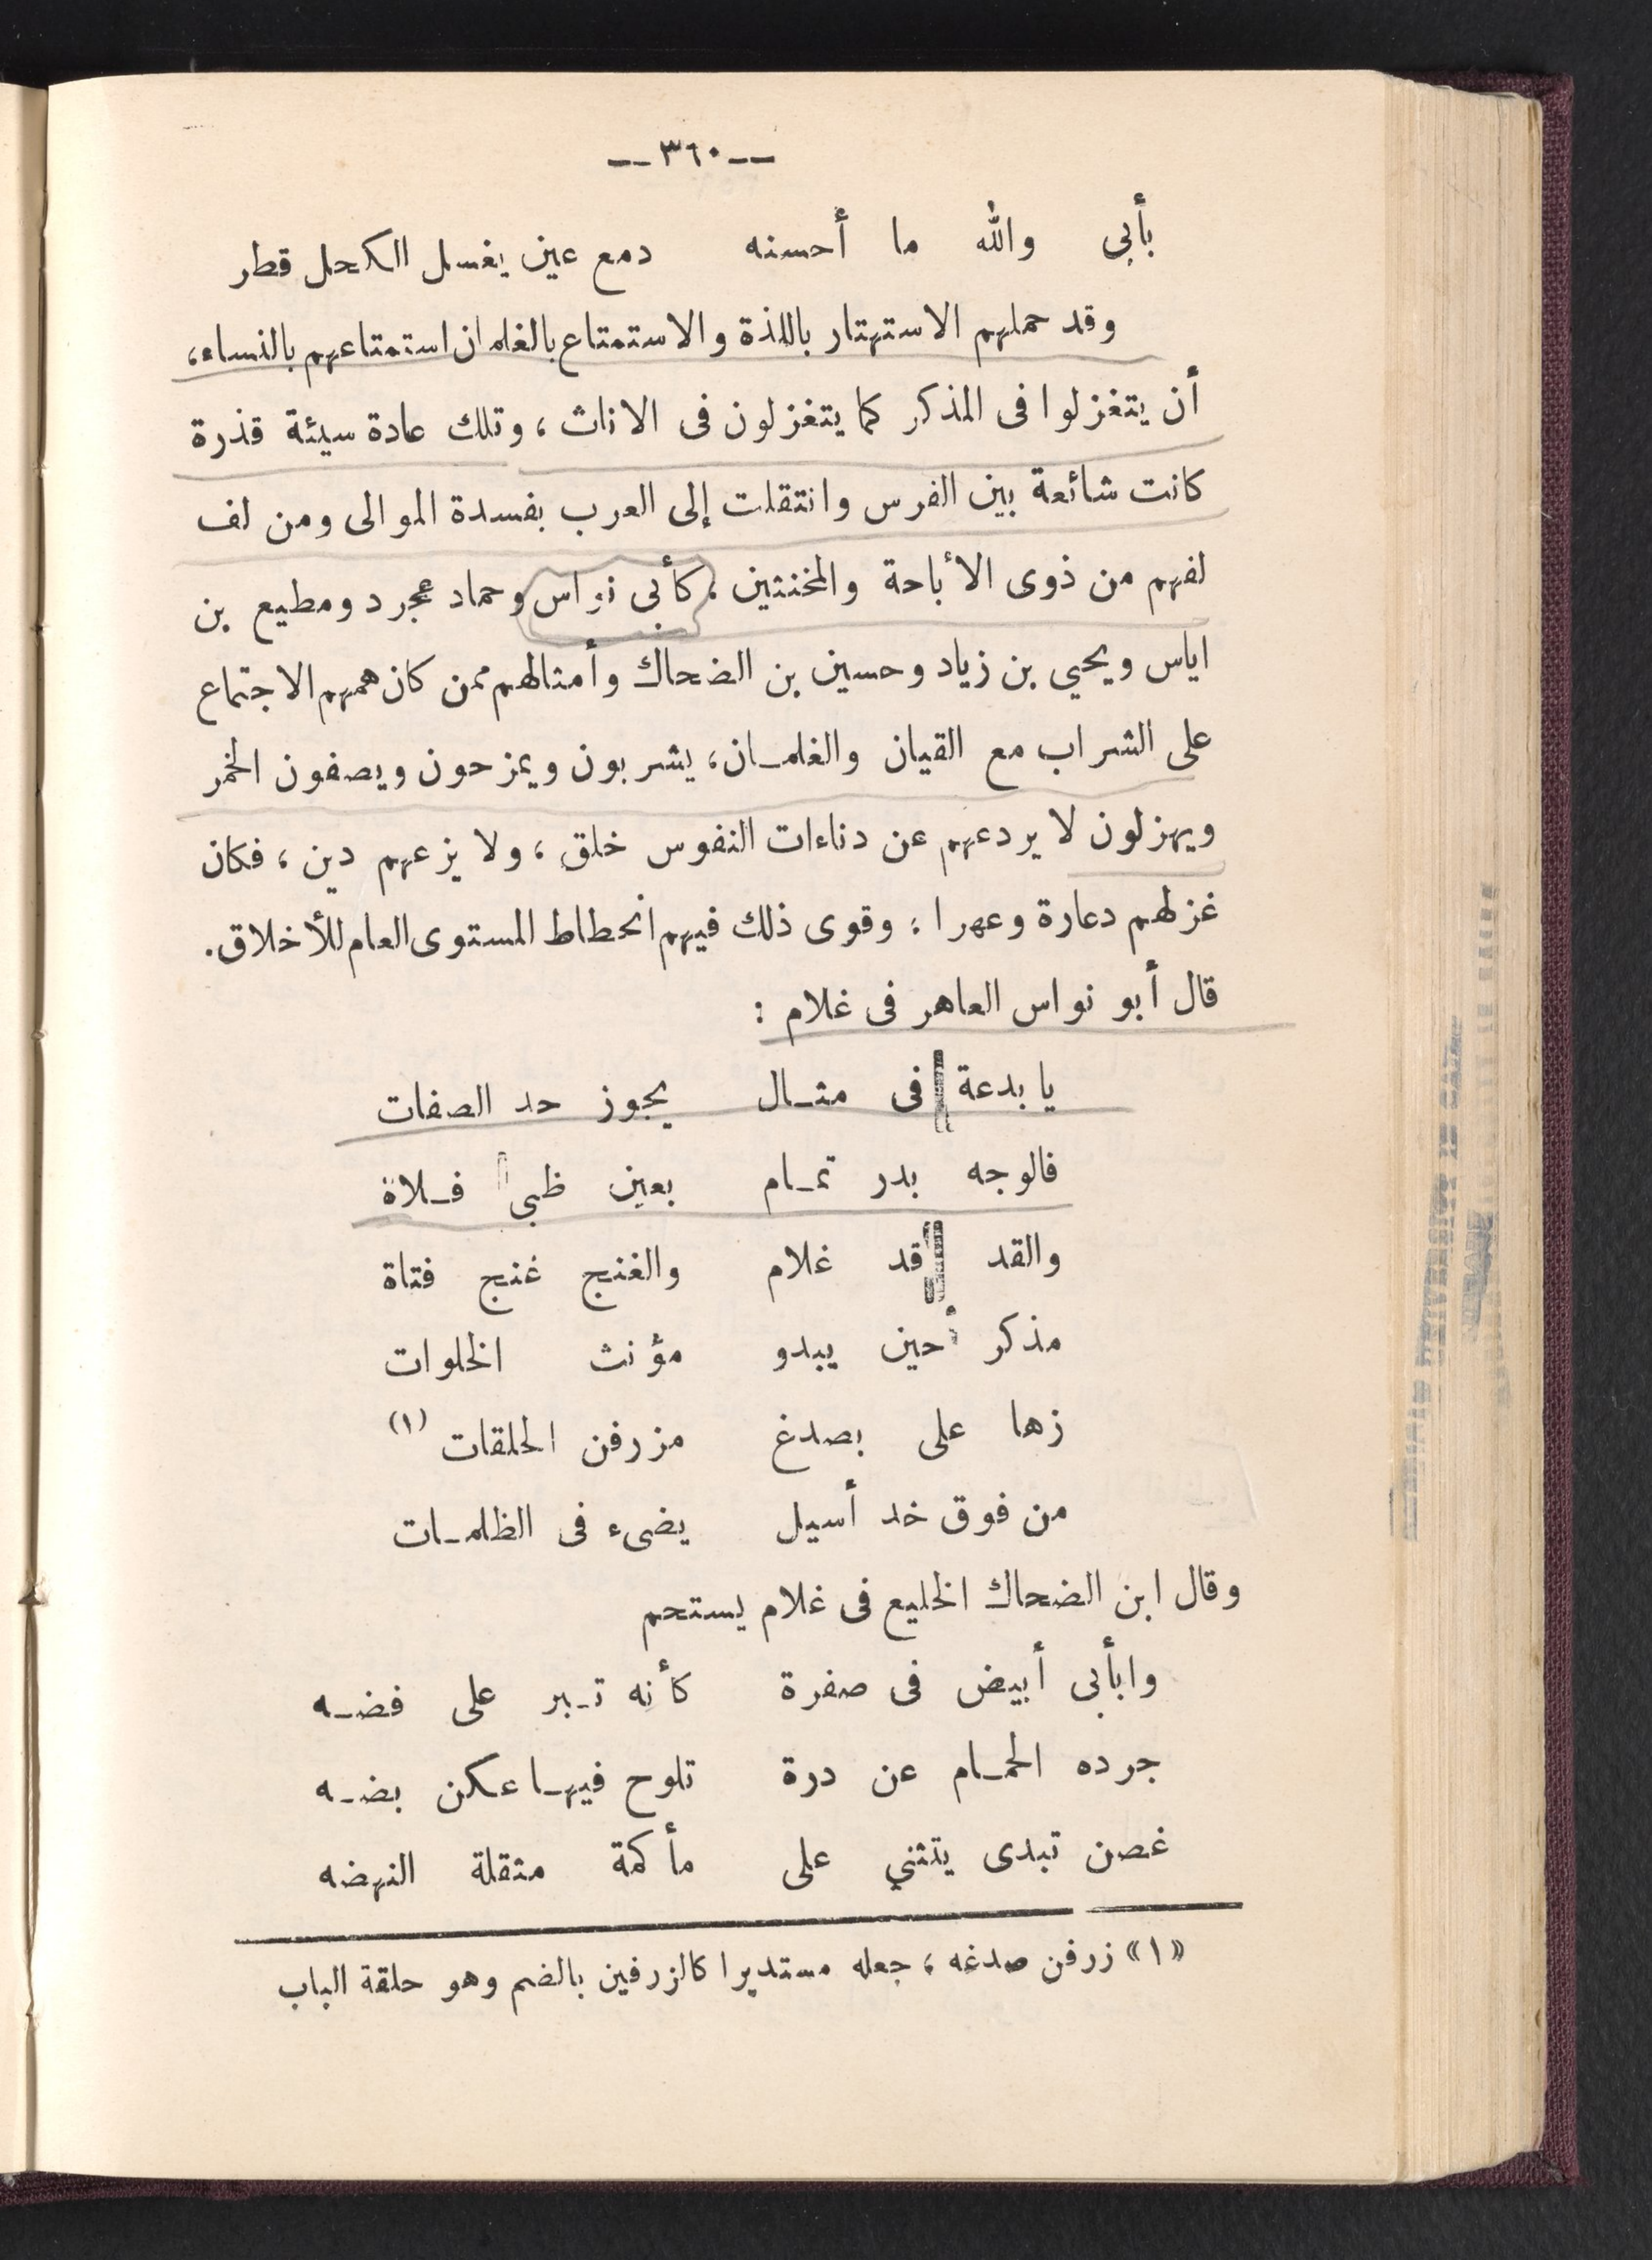 —٣٦٠—
بأبى والله ما أحسنه دمع عين يغسل الكحل قطر
وقد حملهم الاستهتار باللذة والاستمتاع بالغلمان استمتاعهم بالنساء،
أن يتغزلوا فى المذكر كما يتغزلون فى الاناث، وتلك عادة سيئة قذرة
كانت شائعة بين الفرس وانتقلت إلى العرب بفسدة الموالى ومن لف
لفهم من ذوى الأباحة والمخنثين. كأبى نواس وحماد عجرد ومطيع بن
اياس ويحيى بن زياد وحسين بن الضحاك وأمثالهم ممن كان همهم الاجتماع
على الشراب مع القيان والغلمـان، يشربون ويمزحون ويصفون الخمر
ويهزلون لا يردعهم عن دناءات النفوس خلق، ولا يزعهم دين، فكان
غزلهم دعارة وعهرا، وقوى ذلك فيهم انحطاط المستوى العام للأخلاق.
قال أبو نواس العاهر فى غلام:
يا بدعة فى مثـال يجوز حد الصفات
فالوجه بدر تمـام بعين ظبى فـلاة
والقد قد غلام والغنج غنج فتاة
مذكر حين يبدو مؤنث الخلوات
زها على بصدغ مزرفن الحلقات (١)
من فوق خد أسيل يضىء فى الظلمـات
وقال ابن الضحاك الخليع فى غلام يستحم
وابأبى أبيض فى صفرة كأنه تـبر على فضـه
جرده الحمـام عن درة تلوح فيهـا عكن بضـه
غصن تبدى يتثنى على مأكمة مثقلة النهضه
«١» زرفن صدغه، جعله مستديرا كالزرفين بالضم وهو حلقة الباب